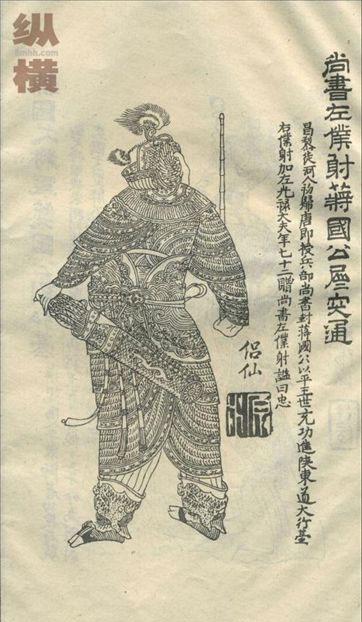 尚書左僕射蔣國公屈突通
昌黎徒河人初歸唐即授兵部尚書封蔣國公以平王世充功進陝東道大行臺
右僕射加左光祿大夫年七十二贈尚書左僕射謚曰忠
侶仙
纵横